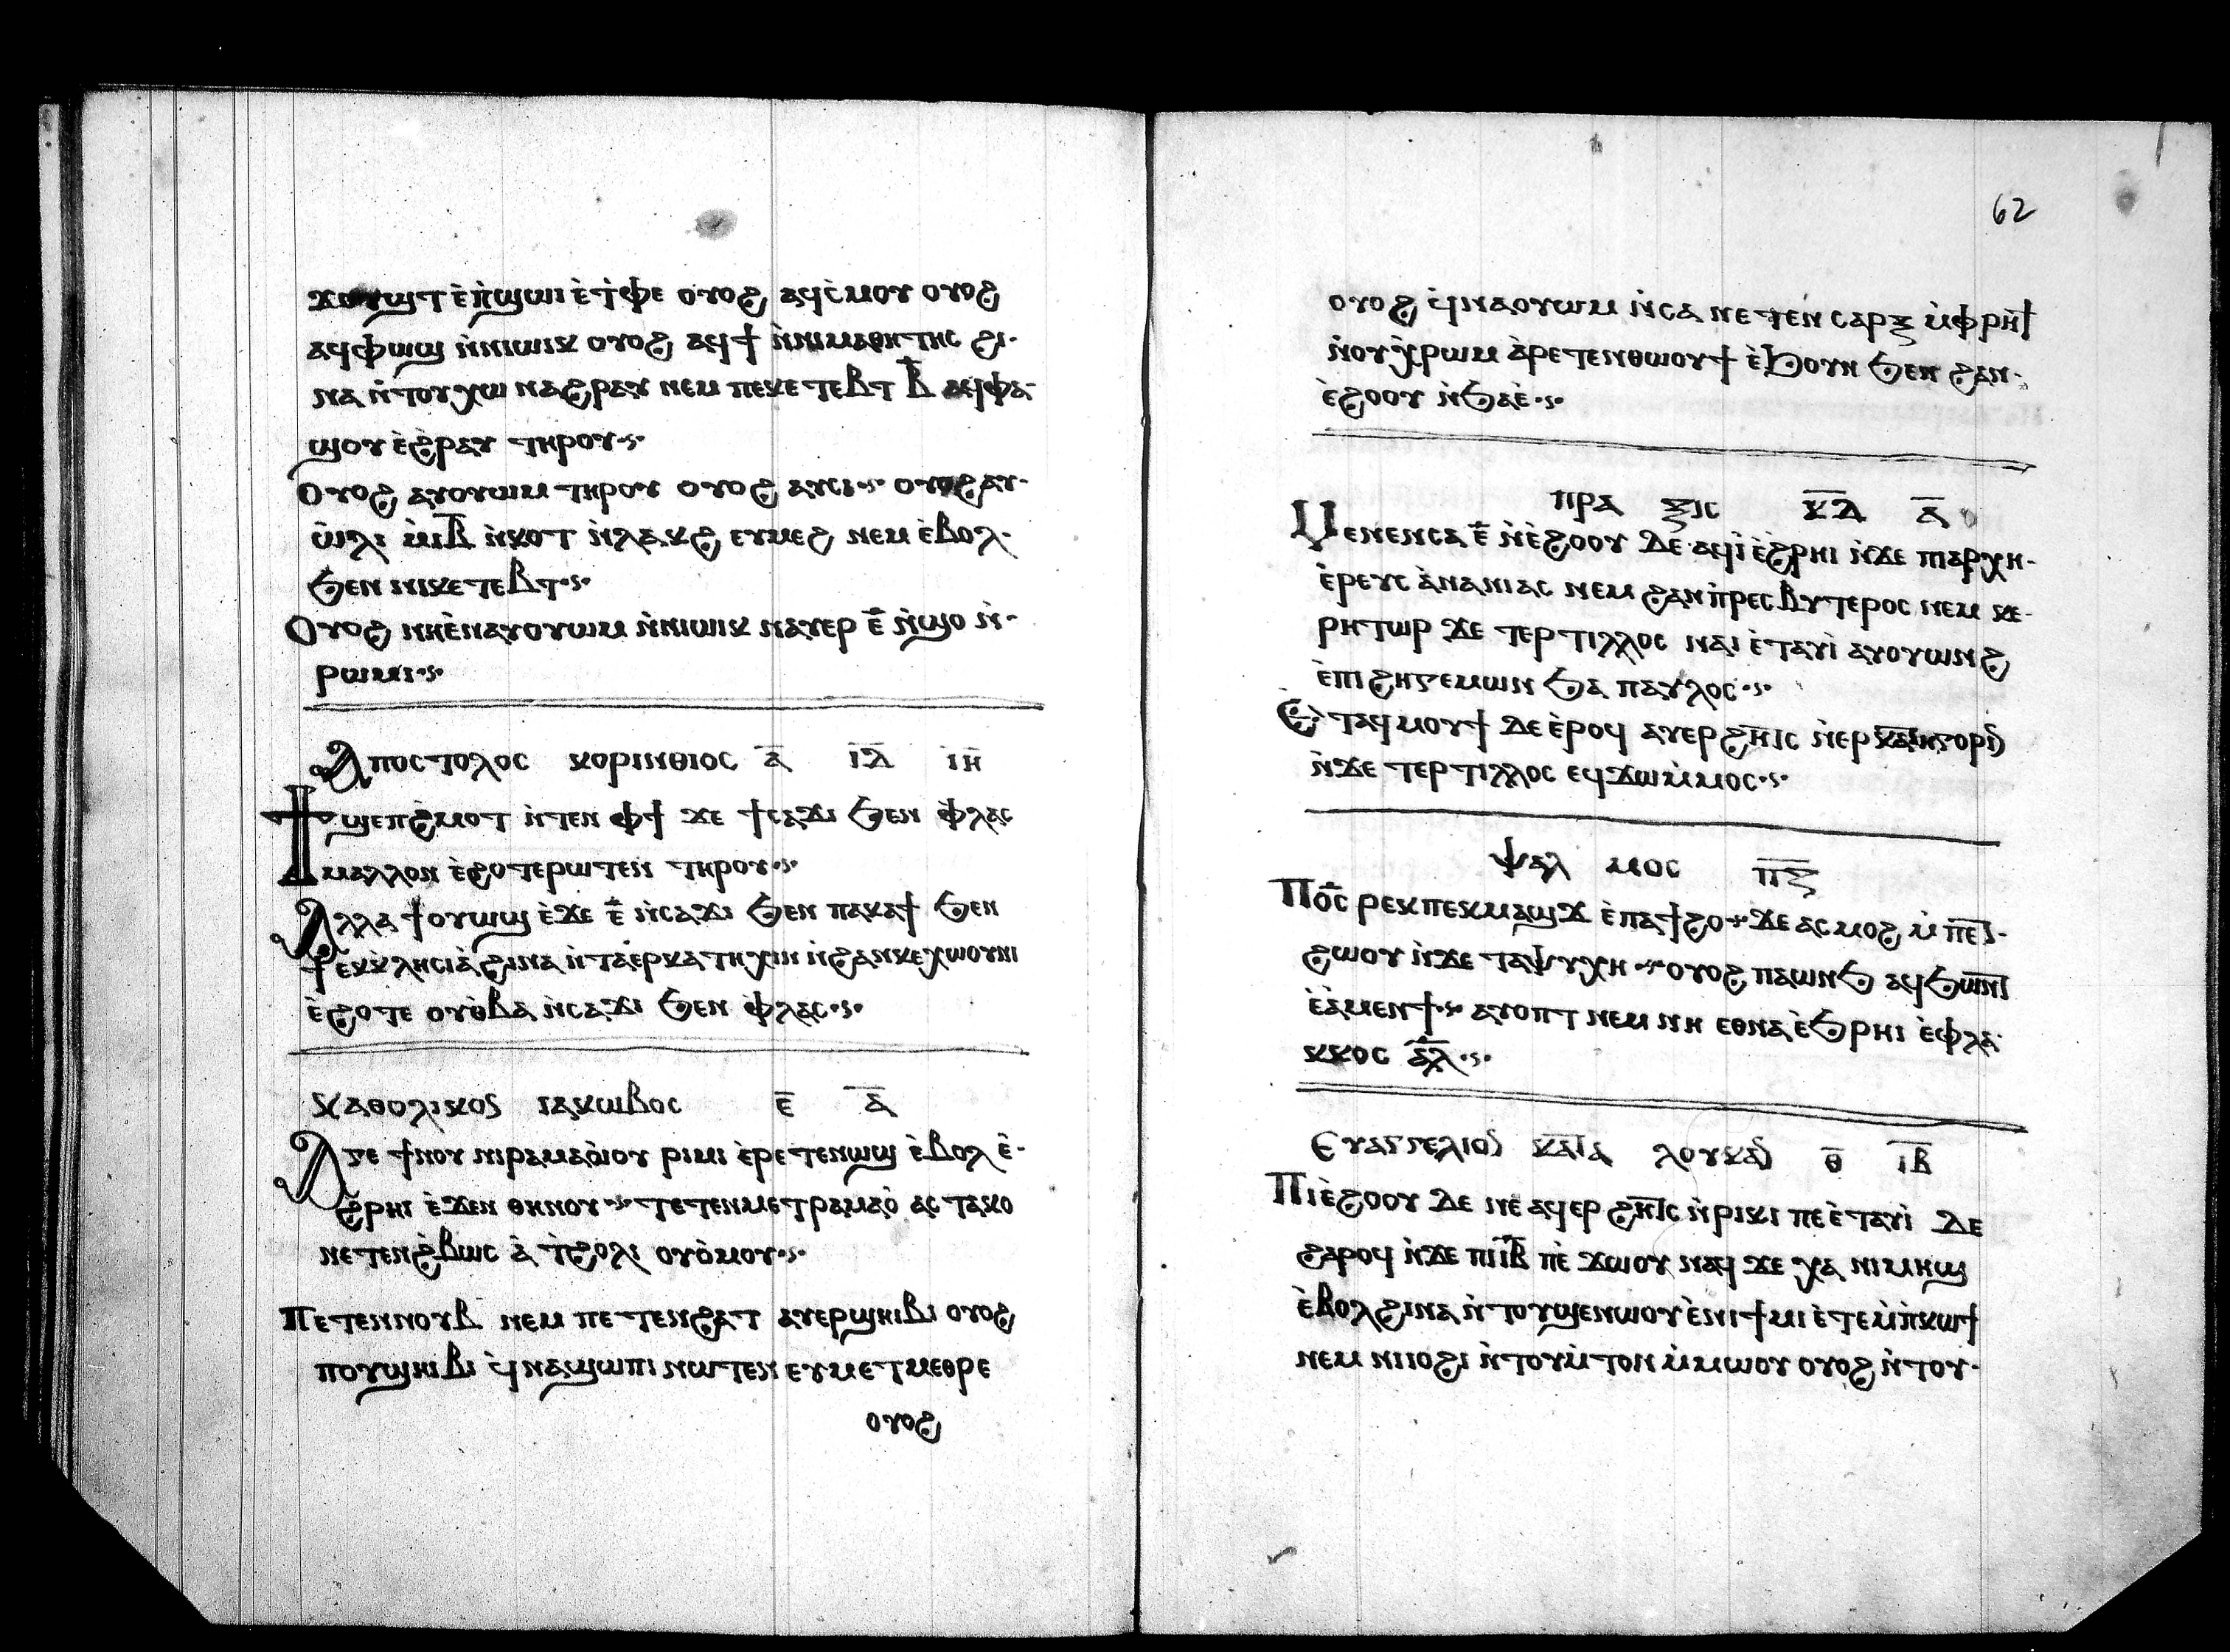 ϫⲟⲩϣⲧ ⲉ̀ⲡ̀ϣⲱⲓ ⲉ̀ⲧ̀ⲫⲉ ⲟⲩⲟϩ ⲁϥⲥ̀ⲙⲟⲩ ⲟⲩⲟϩ
ⲁϥⲫⲱϣ ⲛ̀ⲛⲓⲱⲓⲕ ⲟⲩⲟϩ ⲁϥϯ ⲛ̀ⲛⲓⲙⲁⲑⲏⲧⲏⲥ ϩⲓ-
ⲛⲁ ⲛ̀ⲧⲟⲩⲭⲱ ⲛⲁϩⲣⲁⲩ ⲛⲉⲙ ⲡⲉⲕⲉ ⲧⲉⲃⲧ ⲃ̅ ⲁϥⲫⲁ-
ϣⲟⲩ ⲉ̀ϩ̀ⲣⲁⲩ ⲧⲏⲣⲟⲩ·ⲥ·
Ⲟⲩⲟϩ ⲁⲩⲟⲩⲱⲙ ⲧⲏⲣⲟⲩ ⲟⲩⲟϩ ⲁⲩⲥⲓ·ⲥ· ⲟⲩⲟϩ ⲁⲩ-
ⲱ̀ⲗⲓ ⲙ̀ⲓ̅ⲃ̅ ⲛ̀ⲕⲟⲧ ⲛ̀ⲗⲁⲕϩ ⲉⲩⲙⲉϩ ⲛⲉⲙ ⲉ̀ⲃⲟⲗ-
ϧⲉⲛ ⲛⲓⲕⲉ ⲧⲉⲃⲧ·ⲥ·
Ⲟⲩⲟϩ ⲛⲏⲉ̀ⲛⲁⲩⲟⲩⲱⲙ ⲛ̀ⲛⲓⲱⲓⲕ ⲛⲁⲩⲉⲣ ⲉ̅ ⲛ̀ϣⲟ ⲛ̀-
ⲣⲱⲙⲓ·ⲥ·
Ⲁⲡⲟⲥⲧⲟⲗⲟⲥ ⲕⲟⲣⲓⲛⲑⲓⲟⲥ ⲁ̅ ⲓ̅ⲇ̅ ⲓ̅ⲏ̅
Ϯϣⲉⲡϩ̀ⲙⲟⲧ ⲛ̀ⲧⲉⲛ ⲫϯ ϫⲉ ϯⲥⲁϫⲓ ϧⲉⲛ ⲫ̀ⲗⲁⲥ
ⲙⲁⲗⲗⲟⲛ ⲉ̀ϩⲟⲧⲉⲣⲱⲧⲉⲛ ⲧⲏⲣⲟⲩ·ⲥ·
Ⲁⲗⲗⲁ ϯⲟⲩⲱϣ ⲉ̀ϫⲉ ⲉ̅ ⲛ̀ⲥⲁϫⲓ ϧⲉⲛ ⲡⲁⲕⲁϯ ϧⲉⲛ
ϯⲉⲕⲕ̀ⲗⲏⲥⲓⲁ̀ ϩⲓⲛⲁ ⲛ̀ⲧⲁⲉⲣⲕⲁⲧⲏⲭⲓⲛ ⲛ̀ϩⲁⲛⲕⲉⲭⲱⲟⲩⲛⲓ
ⲉ̀ϩⲟⲧⲉ ⲟⲩⲑ̀ⲃⲁ ⲛ̀ⲥⲁϫⲓ ϧⲉⲛ ⲫ̀ⲗⲁⲥ·ⲥ·
ⲕⲁⲑⲟⲗⲓⲕⲟⲥ ⲓⲁⲕⲱⲃⲟⲥ ⲉ̅ ⲁ̅
Ⲁⲅⲉ ϯⲛⲟⲩ ⲛⲓⲣⲁⲙⲁⲟ̀ⲓⲟⲩ ⲣⲓⲙⲓ ⲉ̀ⲣⲉⲧⲉⲛⲱϣ ⲉ̀ⲃⲟⲗ ⲉ̀-
ϩ̀ⲣⲏⲓ ⲉ̀ϫⲉⲛ ⲑⲏⲛⲟⲩ·ⲥ· ⲧⲉⲧⲉⲛⲙⲉⲧⲣⲁⲙⲁⲟ̀ ⲁⲥⲧⲁⲕⲟ
ⲛⲉⲧⲉⲛϩ̀ⲃⲱⲥ ⲁ̀ ⲧ̀ϩⲟⲗⲓ ⲟⲩⲟ̀ⲙⲟⲩ·ⲥ·
Ⲡⲉⲧⲉⲛⲛⲟⲩⲃ ⲛⲉⲙ ⲡⲉⲧⲉⲛϩⲁⲧ ⲁⲩⲉⲣϣⲏⲓⲃⲓ ⲟⲩⲟϩ
ⲡⲟⲩϣⲏⲓⲃⲓ ϥ̀ⲛⲁϣⲱⲡⲓ ⲛⲱⲧⲉⲛ ⲉⲩⲙⲉⲧⲙⲉⲑⲣⲉ
ⲟⲩⲟϩ
62
ⲟⲩⲟϩ ϥ̀ⲛⲁⲟⲩⲱⲙ ⲛ̀ⲥⲁ ⲛⲉⲧⲉⲛ ⲥⲁⲣⲝ ⲙ̀ⲫⲣⲏϯ
ⲛ̀ⲟⲩⲭ̀ⲣⲱⲙ ⲁ̀ⲣⲉⲧⲉⲛⲑⲱⲟⲩϯ ⲉ̀ϧⲟⲩⲛ ϧⲉⲛ ϩⲁⲛ-
ⲉ̀ϩⲟⲟⲩ ⲛ̀ϧⲁⲉ̀·ⲥ·
ⲡⲣⲁ ⲝⲓⲥ ⲕ̅ⲇ̅ ⲁ̅
Ⲙⲉⲛⲉⲛⲥⲁ ⲉ̅ ⲛ̀ⲉ̀ϩⲟⲟⲩ ⲇⲉ ⲁϥⲓ̀ ⲉ̀ϩⲣⲏⲓ ⲛ̀ϫⲉ ⲡⲓⲁⲣⲭⲏ-
ⲉ̀ⲣⲉⲩⲥ ⲁ̀ⲛⲁⲛⲓⲁⲥ ⲛⲉⲙ ϩⲁⲛⲡ̀ⲣⲉⲥⲃⲩⲧⲉⲣⲟⲥ ⲛⲉⲙ ⲕⲉ-
ⲣⲏⲧⲱⲣ ϫⲉ ⲧⲉⲣⲧⲓⲗⲗⲟⲥ ⲛⲁⲓ ⲉ̀ⲧⲁⲩⲓ̀ ⲁⲩⲟⲩⲱⲛϩ
ⲉ̀ⲡⲓϩⲏⲅⲉⲙⲱⲛ ϧⲁ ⲡⲁⲩⲗⲟⲥ·ⲥ·
Ⲉ̀ⲧⲁϥⲙⲟⲩϯ ⲇⲉ ⲉ̀ⲣⲟϥ ⲁⲩⲉⲣϩⲏⲧⲥ ⲛ̀ⲉⲣ
ⲛ̀ϫⲉ ⲧⲉⲣⲧⲓⲗⲗⲟⲥ ⲉϥϫⲱⲙ̀ⲙⲟⲥ·ⲥ·
ⲯⲁⲗ ⲙⲟⲥ ⲡ̅ⲍ̅
Ⲡⲟ̅ⲥ̅ ⲣⲉⲕⲡⲉⲕⲙⲁϣϫ ⲉ̀ⲡⲁϯϩⲟ ϫⲉ ⲁⲥⲙⲟϩ ⲙ̀ⲡⲉⲧ-
ϩⲱⲟⲩ ⲛ̀ϫⲉ ⲧⲁⲯⲩⲭⲏ ⲟⲩⲟϩ ⲡⲁⲱⲛϧ ⲁϥϧⲱⲛⲧ
ⲉ̀ⲁ̀ⲙⲉⲛϯ ⲁⲩⲟⲡⲧ ⲛⲉⲙ ⲛⲏ ⲉⲑⲛⲁⲉ̀ϧⲣⲏⲓ ⲉ̀ⲫⲗⲁ-
ⲕⲕⲟⲥ ⲁ̅ⲗ̅·ⲥ·
Ⲉⲩⲁⲅⲅⲉⲗⲓⲟⲛ ⲕⲁⲧⲁ ⲗⲟⲩⲕⲁⲛ ⲑ̅ ⲓ̅ⲃ̅
Ⲡⲓⲉ̀ϩⲟⲟⲩ ⲇⲉ ⲛⲉ ⲁϥⲉⲣϩⲏⲧⲥ ⲛ̀ⲣⲓⲕⲓ ⲡⲉ ⲉ̀ⲧⲁⲩⲓ̀ ⲇⲉ
ϩⲁⲣⲟϥ ⲛ̀ϫⲉ ⲡⲓⲓ̅ⲃ̅ ⲡⲉ̀ϫⲱⲟⲩ ⲛⲁϥ ϫⲉ ⲭⲁ ⲛⲓⲙⲏϣ
ⲉ̀ⲃⲟⲗ ϩⲓⲛⲁ ⲛ̀ⲧⲟⲩϣⲉⲛⲱⲟⲩ ⲉ̀ⲛⲓϯⲙⲓ ⲉ̀ⲧⲉⲙ̀ⲡ̀ⲕⲱϯ
ⲛⲉⲙ ⲛⲓⲓⲟϩⲓ ⲛ̀ⲧⲟⲩⲙ̀ⲧⲟⲛ ⲙ̀ⲙⲱⲟⲩ ⲟⲩⲟϩ ⲛ̀ⲧⲟⲩ-